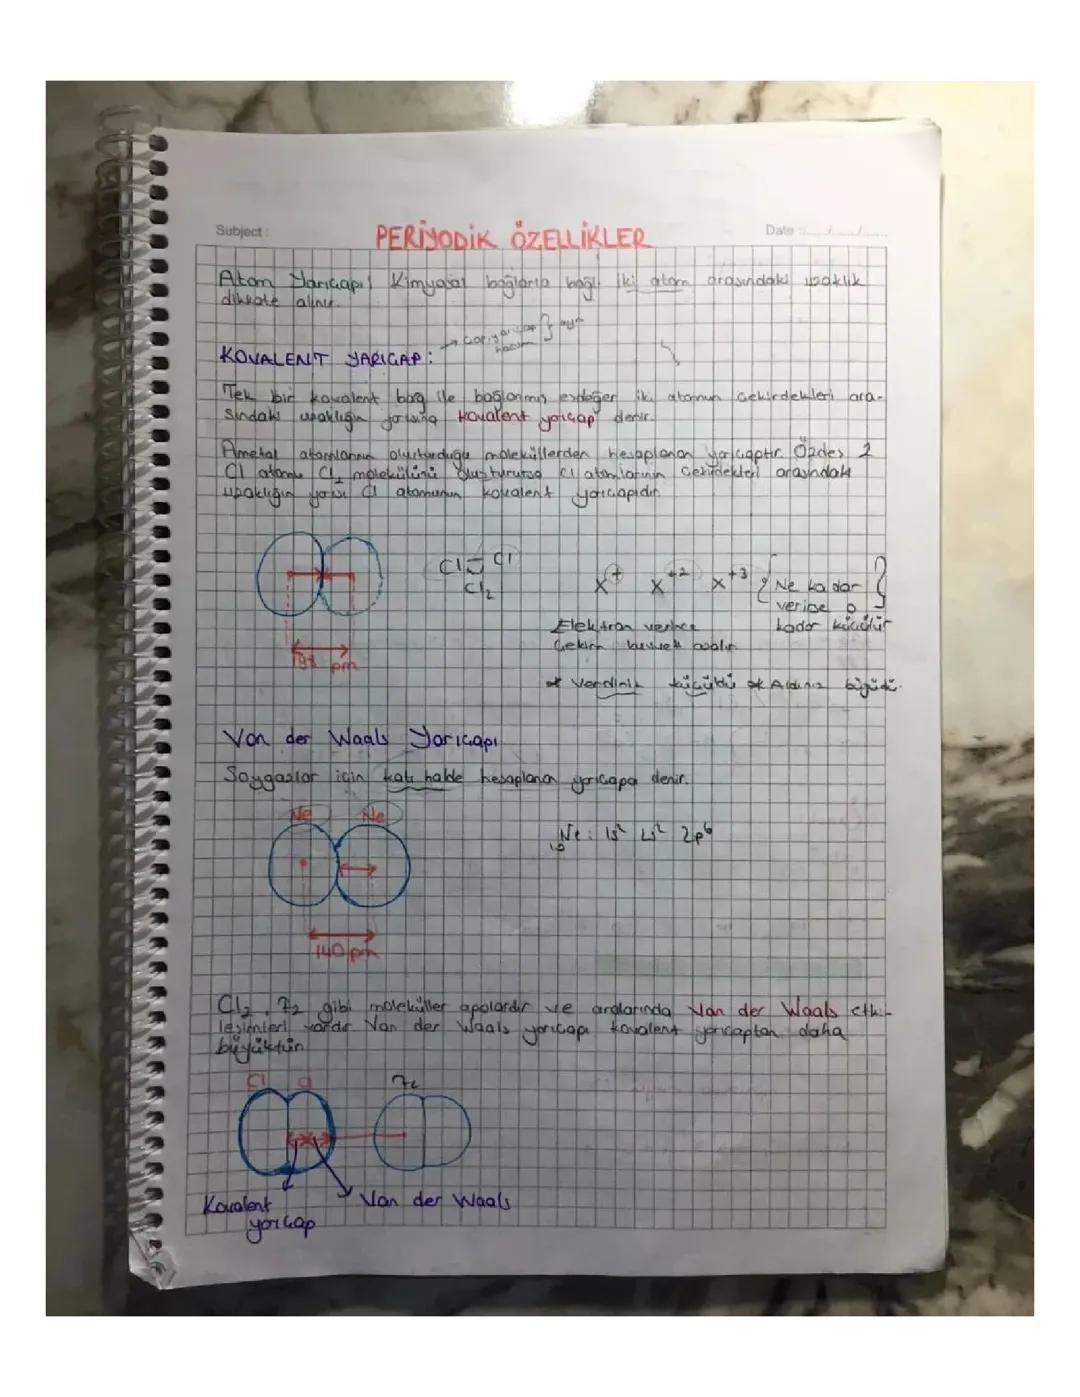 Subject:
PERİYODİK ÖZELLİKLER
Date :
Atom Yarıçapı: Kimyasal bağlarla bağlı iki atom arasındaki uzaklık
dikkate alınır.
KOVALENT YARIÇAP:
→ çap, yarıçap hacim } aynı
Tek bir kovalent bağ ile bağlanmış eşdeğer iki atomun çekirdekleri ara-
sındaki uzaklığın yarısına kovalent yarıçap denir.
Ametal atomlarının oluşturduğu moleküllerden hesaplanan yarıçaptır. Özdeş 2
Cl atomu Cl₂ molekülünü oluşturursa Cl atomlarının çekirdekleri arasındaki
uzaklığın yarısı Cl atomunun kovalent yarıçapıdır.
Cl Cl
Cl₂
X⁺ X⁺² X⁺³ { Ne kadar
verirse o
kadar küçülür }
Elektron verince
çekim kuvveti azalır
* Verdinik küçüldü * Aldınız büyüdü.
pm
Van der Waals Yarıçapı
Soygazlar için katı halde hesaplanan yarıçapa denir.
Ne Ne
₁₀Ne: 1s² 2s² 2p⁶
140 pm
Cl₂, F₂ gibi moleküller apolardır ve aralarında Van der Waals etki-
leşimleri vardır. Van der Waals yarıçapı kovalent yarıçaptan daha
büyüktür.
Cl Cl
Kovalent
yarıçap
Van der Waals